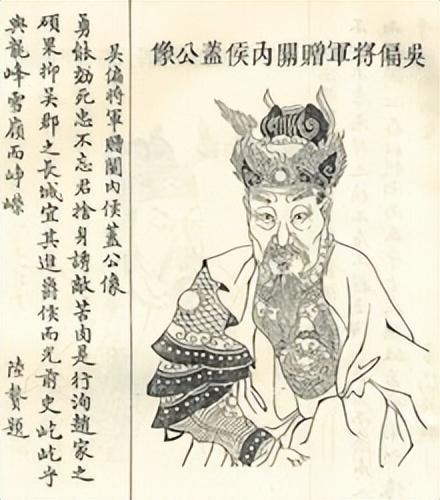 吳偏將軍贈關內侯蓋公像
吳偏將軍贈關內侯蓋公像
勇能効死忠不忘君捨身誘敵苦肉是行洵趙家之
碩果抑吳郡之長城宜其進爵侯而光前史屹屹乎
與龍峰雪嶺而崢嶸 陸贄題